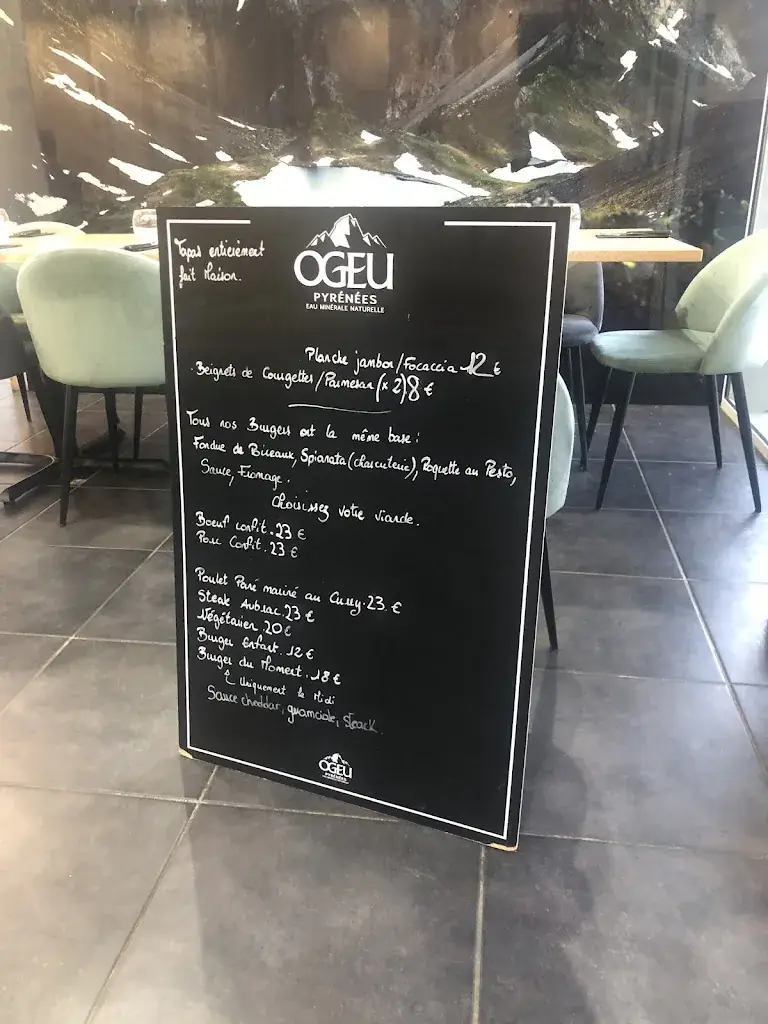 Tapas entièrement
fait Maison.
OGEU
PYRÉNÉES
EAU MINÉRALE NATURELLE
Planche jambon/Focaccia 12 €
. Beignets de Courgettes/Parmesan (x 2) 8 €
Tous nos Burgers ont la même base :
Fondue de Poireaux, Spianata (charcuterie), Roquette au Pesto,
Sauce, Fromage.
Choisissez votre viande.
Boeuf confit . 23 €
Porc Confit . 23 €
Poulet Pané mariné au Curry . 23 €
Steak Aubrac . 23 €
Végétarien . 20 €
Burger Enfant . 12 €
Burger du Moment . 18 €
Uniquement le Midi
Sauce cheddar, guanciale, steack.
OGEU
PYRÉNÉES